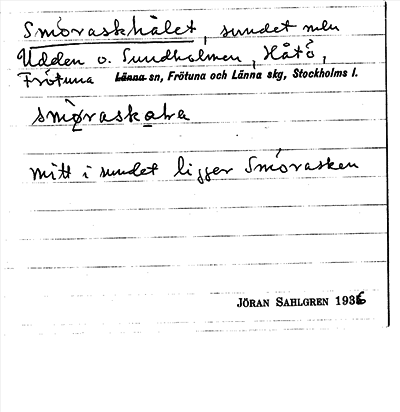 Smöraskhålet, sundet mln
Udden o. Sundholmen, Håtö,
Frötuna Länna sn, Frötuna och Länna skg, Stockholms l.
mitt i sundet ligger Smörasken
JÖRAN SAHLGREN 1936